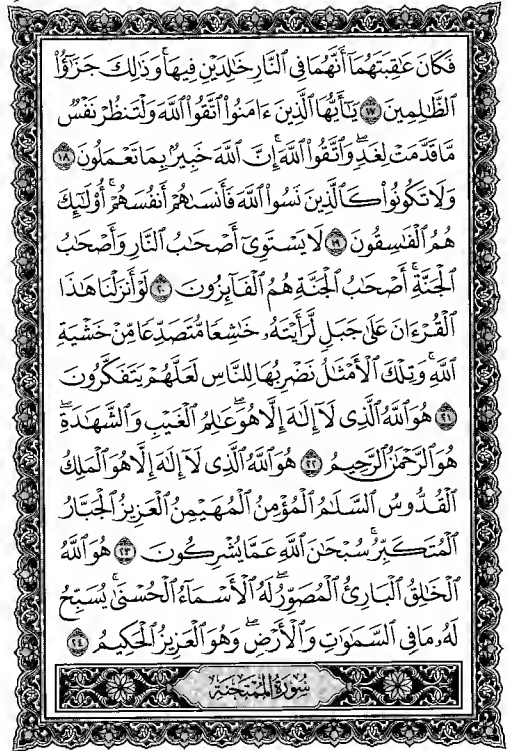 فَكَانَ عَٰقِبَتَهُمَآ أَنَّهُمَا فِي ٱلنَّارِ خَٰلِدَيْنِ فِيهَا ۚ وَذَٰلِكَ جَزَٰٓؤُا۟
ٱلظَّٰلِمِينَ ١٧ يَٰٓأَيُّهَا ٱلَّذِينَ ءَامَنُوا۟ ٱتَّقُوا۟ ٱللَّهَ وَلْتَنظُرْ نَفْسٌ
مَّا قَدَّمَتْ لِغَدٍ ۖ وَٱتَّقُوا۟ ٱللَّهَ ۚ إِنَّ ٱللَّهَ خَبِيرٌۢ بِمَا تَعْمَلُونَ ١٨
وَلَا تَكُونُوا۟ كَٱلَّذِينَ نَسُوا۟ ٱللَّهَ فَأَنسَىٰهُمْ أَنفُسَهُمْ ۚ أُو۟لَٰٓئِكَ
هُمُ ٱلْفَٰسِقُونَ ١٩ لَا يَسْتَوِىٓ أَصْحَٰبُ ٱلنَّارِ وَأَصْحَٰبُ
ٱلْجَنَّةِ ۚ أَصْحَٰبُ ٱلْجَنَّةِ هُمُ ٱلْفَآئِزُونَ ٢٠ لَوْ أَنزَلْنَا هَٰذَا
ٱلْقُرْءَانَ عَلَىٰ جَبَلٍ لَّرَأَيْتَهُۥ خَٰشِعًا مُّتَصَدِّعًا مِّنْ خَشْيَةِ
ٱللَّهِ ۚ وَتِلْكَ ٱلْأَمْثَٰلُ نَضْرِبُهَا لِلنَّاسِ لَعَلَّهُمْ يَتَفَكَّرُونَ
٢١ هُوَ ٱللَّهُ ٱلَّذِى لَآ إِلَٰهَ إِلَّا هُوَ ۖ عَٰلِمُ ٱلْغَيْبِ وَٱلشَّهَٰدَةِ ۖ
هُوَ ٱلرَّحْمَٰنُ ٱلرَّحِيمُ ٢٢ هُوَ ٱللَّهُ ٱلَّذِى لَآ إِلَٰهَ إِلَّا هُوَ ٱلْمَلِكُ
ٱلْقُدُّوسُ ٱلسَّلَٰمُ ٱلْمُؤْمِنُ ٱلْمُهَيْمِنُ ٱلْعَزِيزُ ٱلْجَبَّارُ
ٱلْمُتَكَبِّرُ ۚ سُبْحَٰنَ ٱللَّهِ عَمَّا يُشْرِكُونَ ٢٣ هُوَ ٱللَّهُ
ٱلْخَٰلِقُ ٱلْبَارِئُ ٱلْمُصَوِّرُ ۖ لَهُ ٱلْأَسْمَآءُ ٱلْحُسْنَىٰ ۚ يُسَبِّحُ
لَهُۥ مَا فِى ٱلسَّمَٰوَٰتِ وَٱلْأَرْضِ ۖ وَهُوَ ٱلْعَزِيزُ ٱلْحَكِيمُ ٢٤
سُورَةُ ٱلْمُمْتَحِنَةِ